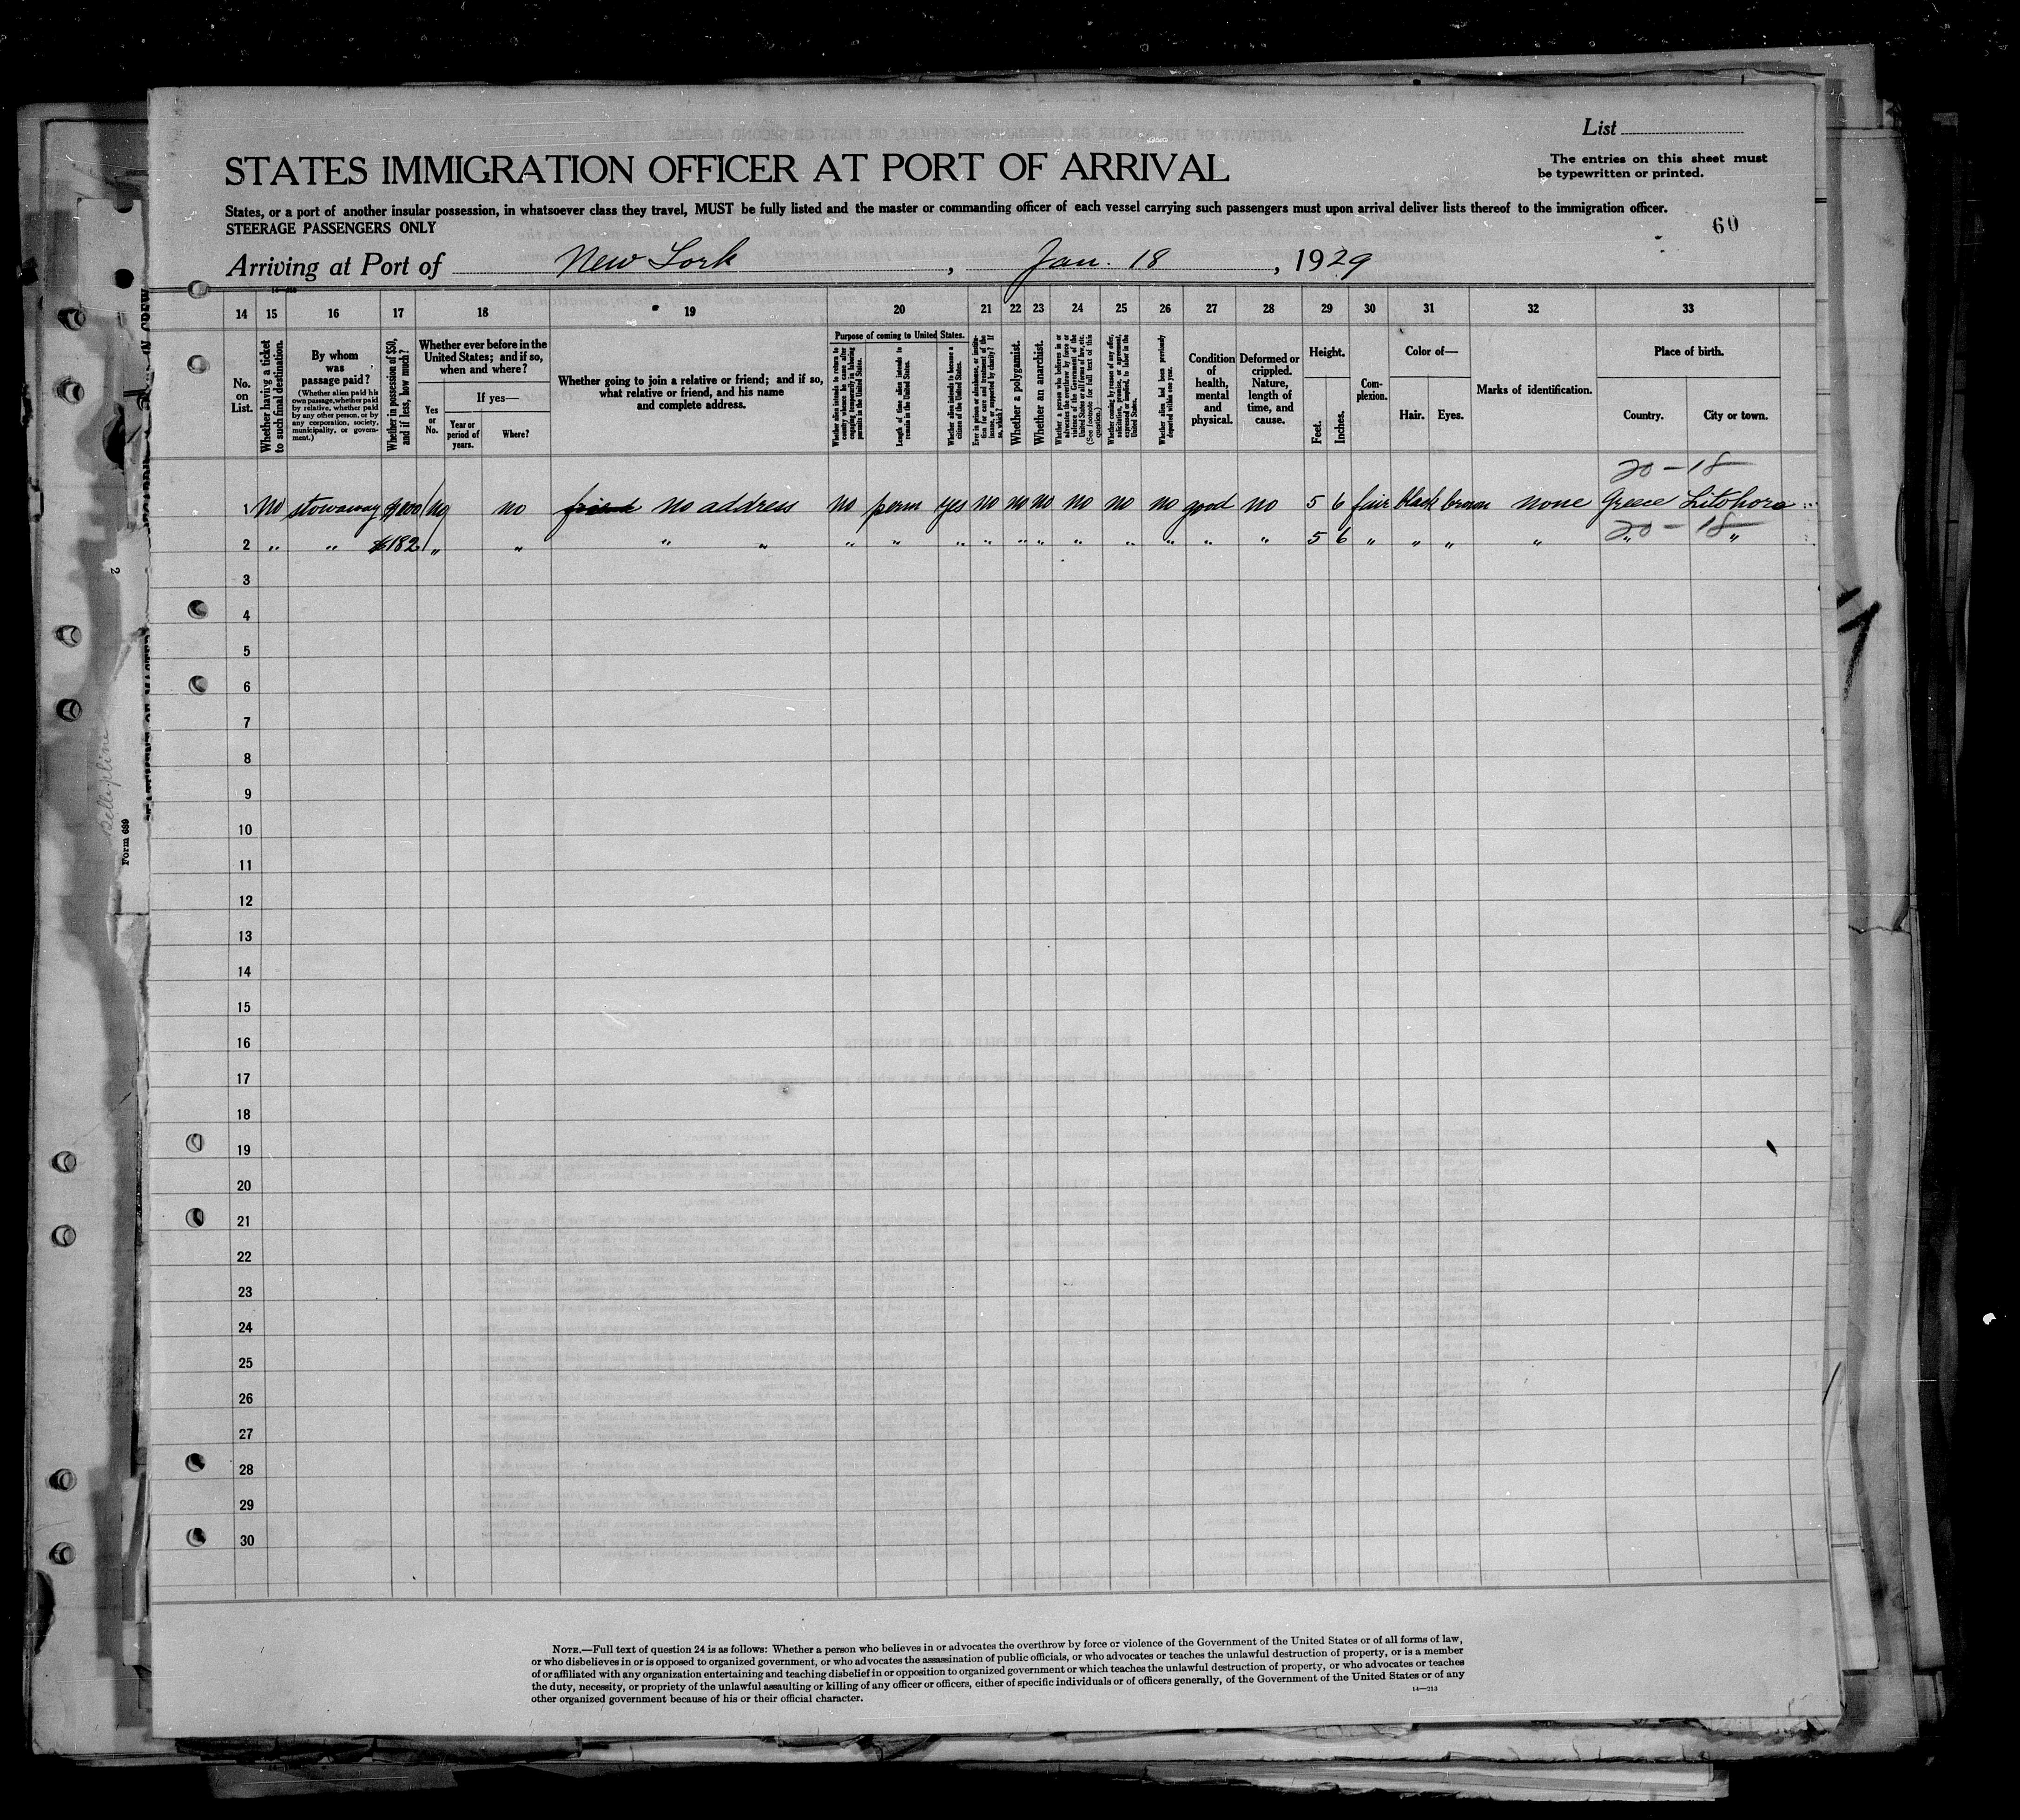 List
STATES IMMIGRATION OFFICER AT PORT OF ARRIVAL
The entries on this sheet must
be typewritten or printed.
States, or a port of another insular possession, in whatsoever class they travel, MUST be fully listed and the master or commanding officer of each vessel carrying such passengers must upon arrival deliver lists thereof to the immigration officer.
STEERAGE PASSENGERS ONLY
60
Arriving at Port of New York, Jan. 18, 1929
14 15 16 17 18 19 20 21 22 23 24 25 26 27 28 29 30 31 32 33
No. on List.
Whether having a ticket to such final destination.
By whom was passage paid?
(Whether alien paid his own passage, whether paid by relative, whether paid by any other person, or by any corporation, society, municipality, or government.)
Whether in possession of $50, and if less, how much?
Whether ever before in the United States; and if so, when and where?
Yes or No.
If yes—
Year or period of years.
Where?
Whether going to join a relative or friend; and if so, what relative or friend, and his name and complete address.
Purpose of coming to United States.
Whether alien intends to return to country whence he came after engaging temporarily in laboring pursuits in the United States.
Length of time alien intends to remain in the United States.
Whether alien intends to become a citizen of the United States.
Ever in prison or almshouse, or institution for care and treatment of the insane, or supported by charity? If so, which?
Whether a polygamist.
Whether an anarchist.
Whether a person who believes in or advocates the overthrow by force or violence of the Government of the United States or all forms of law, etc. (See footnote for full text of this question.)
Whether coming by reason of any offer, solicitation, promise, or agreement, expressed or implied, to labor in the United States.
Whether alien had been previously deported within one year.
Condition of health, mental and physical.
Deformed or crippled. Nature, length of time, and cause.
Height.
Feet.
Inches.
Complexion.
Color of—
Hair.
Eyes.
Marks of identification.
Place of birth.
Country.
City or town.
20-18
1 No stowaway $200 no no friend no address no perm yes no no no no no no good no 5 6 fair black brown none Greece Litohoro
20-18
2 " " $182 " " " " " " " " " " " " " " " 5 6 " " " " " "
3
4
5
6
7
8
9
10
11
12
13
14
15
16
17
18
19
20
21
22
23
24
25
26
27
28
29
30
NOTE.—Full text of question 24 is as follows: Whether a person who believes in or advocates the overthrow by force or violence of the Government of the United States or of all forms of law,
or who disbelieves in or is opposed to organized government, or who advocates the assassination of public officials, or who advocates or teaches the unlawful destruction of property, or is a member
of or affiliated with any organization entertaining and teaching disbelief in or opposition to organized government or which teaches the unlawful destruction of property, or who advocates or teaches
the duty, necessity, or propriety of the unlawful assaulting or killing of any officer or officers, either of specific individuals or of officers generally, of the Government of the United States or of any
other organized government because of his or their official character.
14—213
Form 689
2